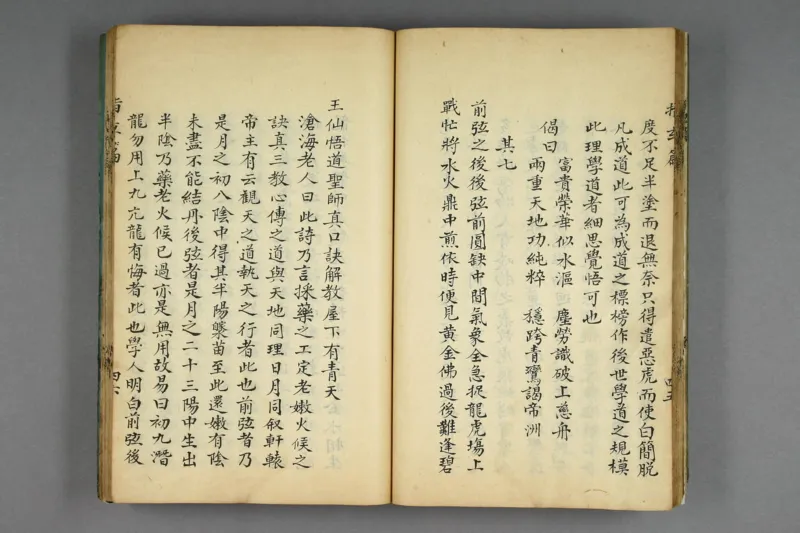 度不足半塗而退無奈只得遣惡虎而使白簡脱
凡成道此可為成道之標榜作後世學道之規模
此理學道者細思覺悟可也
偈曰 富貴榮華似水漚 塵勞識破上慈舟
兩重天地功純粹 穩跨青鸞謁帝洲
其七
前弦之後後弦前圓缺中間氣象全急捉龍虎場上
戰忙將水火鼎中煎依時便見黄金佛過後難逢碧
玉仙悟道聖師真口訣解教屋下有青天
滄海老人曰此詩乃言採藥之工定老嫩火候之
訣真三教心傳之道與天地同理日月同叙軒轅
帝主有云觀天之道執天之行者此也前弦者乃
是月之初八陰中得其半陽藥苗至此還嫩有陰
未盡不能結丹後弦者是月之二十三陽中生出
半陰乃藥老火候已過亦是無用故易曰初九潛
龍勿用上九亢龍有悔者此也學人明白前弦後
指玄篇
四五
四六